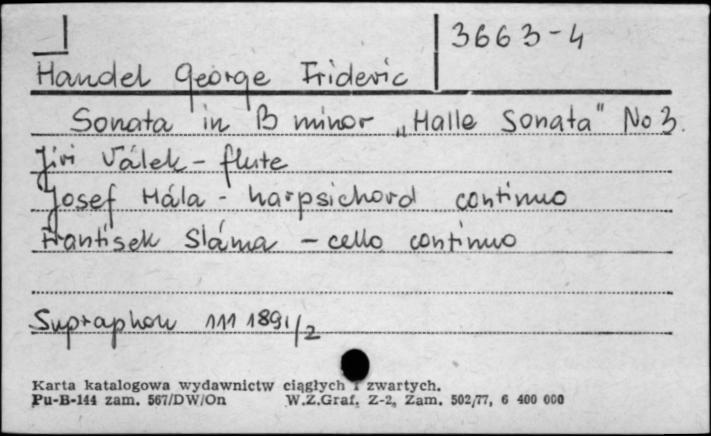 3663-4
Handel George Frideric
Sonata in B minor „Halle Sonata" No 3.
Jiri Válek - flute
Josef Hála - harpsichord continuo
Frantisek Sláma - cello continuo
Supraphon 111 1891/2
Karta katalogowa wydawnictw ciągłych i zwartych.
Pu-B-144 zam. 567/DW/On W.Z.Graf. Z-2, Zam. 502/77, 6 400 000